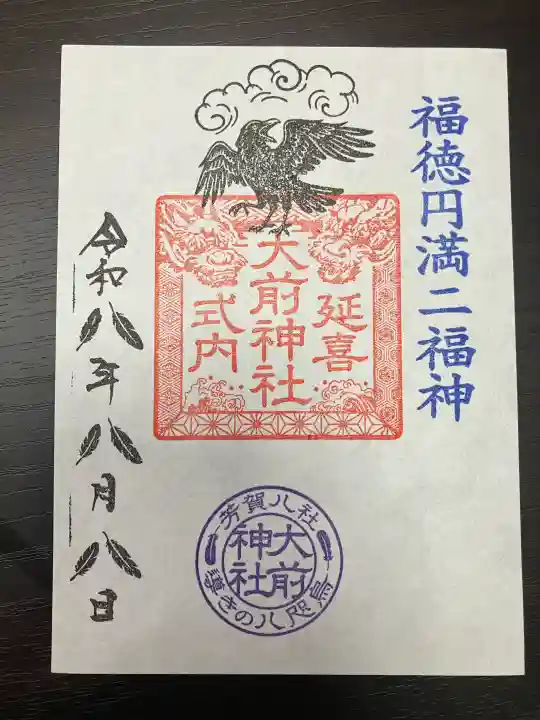 福徳円満二福神
延喜
大前神社
式内
令和八年八月八日
芳賀八社
大前
神社
導きの八咫烏